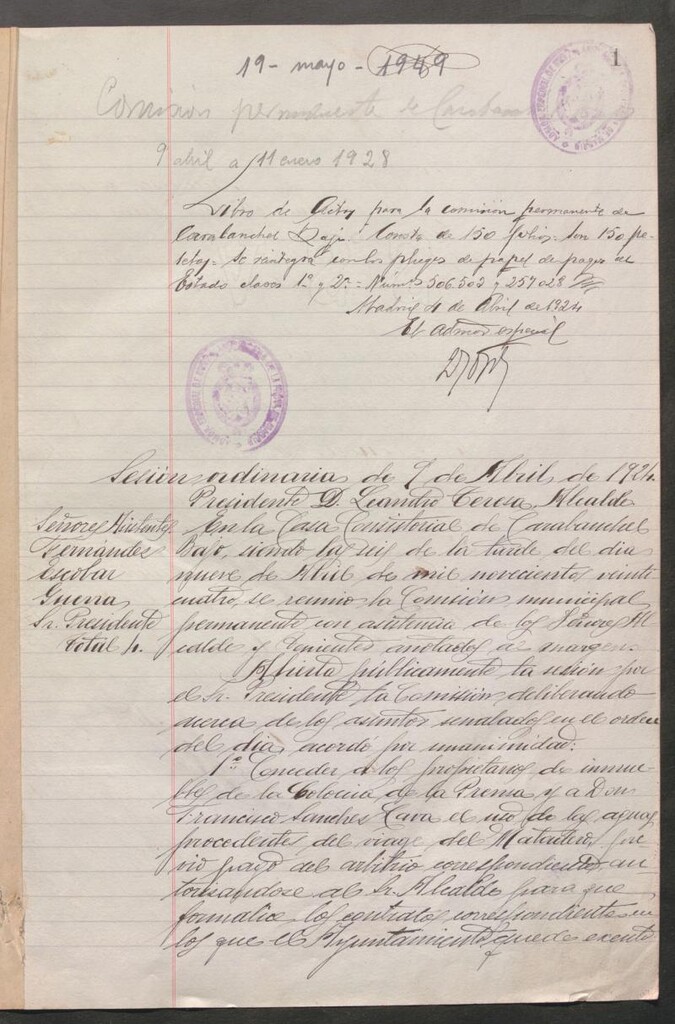 1
19 - mayo - 1949
Comisión permanente de Caraban
9 abril a 11 enero 1928
Libro de Actas para la comisión permanente de
Carabanchel Bajo. Consta de 150 folios. Son 150 pe-
setas. Se reintegra con los pliegos de papel de pagos al
Estado clases 1ª y 2ª. Núms 506.503 y 257028
Madrid 4 de Abril de 1924
El admor especial
Sesión ordinaria de 9 de Abril de 1924.
Presidente D. Leandro Teresa, Alcalde
Señores Asistentes
Fernández
Escobar
Guerra
Sr. Presidente
Total 4.
En la Casa Consistorial de Carabanchel
Bajo, siendo las seis de la tarde del dia
nueve de Abril de mil novecientos veinti
cuatro, se reunio la Comisión municipal
permanente con asistencia de los Señores Al
calde y Tenientes anotados al margen.
Abierta públicamente la sesión por
el Sr. Presidente la Comisión deliberando
acerca de los asuntos senalados en el orden
del dia, acordó por unanimidad:
1º Conceder a los propietarios de inmue-
bles de la Colonia de la Prensa y a Don
Francisco Sanches Lava el uso de las aguas
procedentes del viage del Matadero, pre
vio pago del arbitrio correspondiente, au
torisandose al Sr. Alcalde para que
formalice los contratos correspondientes en
los que el Ayuntamiento quede exento